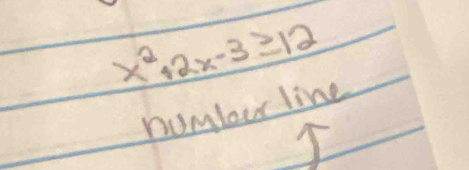 x²+2x-3≥12
number line
↑